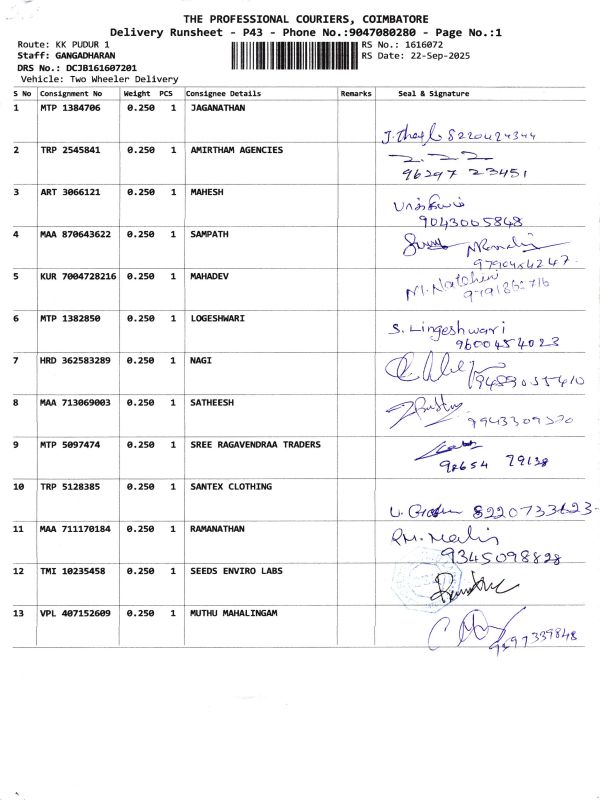 THE PROFESSIONAL COURIERS, COIMBATORE
Delivery Runsheet - P43 - Phone No.:9047080280 - Page No.:1
Route: KK PUDUR 1
RS No.: 1616072
Staff: GANGADHARAN
RS Date: 22-Sep-2025
DRS No.: DCJB161607201
Vehicle: Two Wheeler Delivery
S No Consignment No Weight PCS Consignee Details Remarks Seal & Signature
1 MTP 1384706 0.250 1 JAGANATHAN
2 TRP 2545841 0.250 1 AMIRTHAM AGENCIES
96297 23451
3 ART 3066121 0.250 1 MAHESH
9043005848
4 MAA 870643622 0.250 1 SAMPATH
5 KUR 7004728216 0.250 1 MAHADEV
6 MTP 1382850 0.250 1 LOGESHWARI
S. Lingeshwari
9600454023
7 HRD 362583289 0.250 1 NAGI
8 MAA 713069003 0.250 1 SATHEESH
9 MTP 5097474 0.250 1 SREE RAGAVENDRAA TRADERS
10 TRP 5128385 0.250 1 SANTEX CLOTHING
11 MAA 711170184 0.250 1 RAMANATHAN
9345098828
12 TMI 10235458 0.250 1 SEEDS ENVIRO LABS
13 VPL 407152609 0.250 1 MUTHU MAHALINGAM